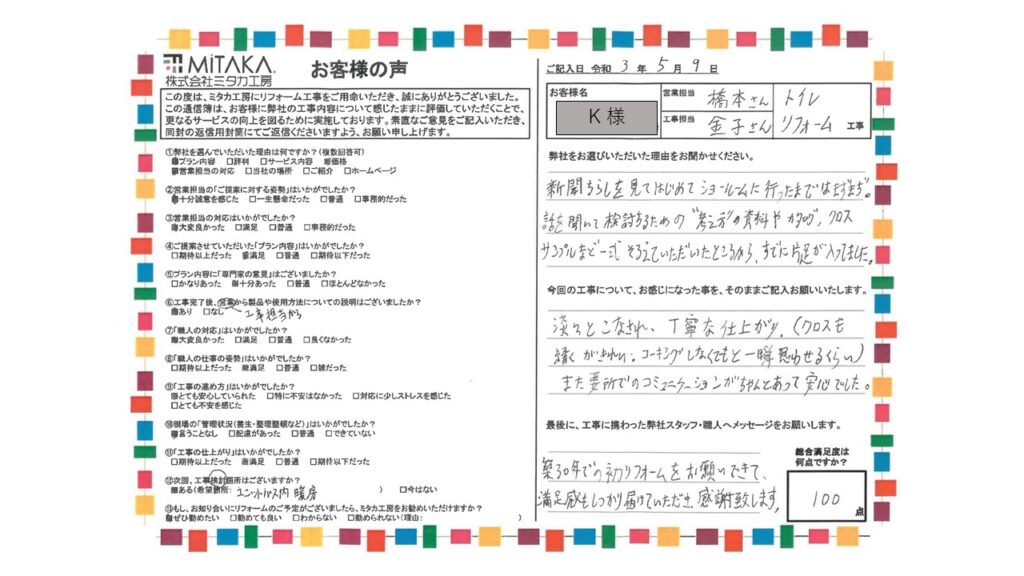 MiTAKA.
株式会社ミタカ工房
お客様の声
この度は、ミタカ工房にリフォーム工事をご用命いただき、誠にありがとうございました。
この通信簿は、お客様に弊社の工事内容について感じたままに評価していただくことで、
更なるサービスの向上を図るために実施しております。素直なご意見をご記入いただき、
同封の返信用封筒にてご返信くださいますよう、お願い申し上げます。
①弊社を選んでいただいた理由は何ですか?(複数回答可)
■プラン内容 □評判 □サービス内容 ■価格
■営業担当の対応 □当社の場所 □ご紹介 □ホームページ
②営業担当の「ご提案に対する姿勢」はいかがでしたか?
■十分誠意を感じた □一生懸命だった □普通 □事務的だった
③営業担当の対応はいかがでしたか?
■大変良かった □満足 □普通 □事務的だった
④ご提案させていただいた「プラン内容」はいかがでしたか?
□期待以上だった ■満足 □普通 □期待以下だった
⑤プラン内容に「専門家の意見」はございましたか?
□かなりあった ■十分あった □普通 □ほとんどなかった
⑥工事完了後、営業から製品や使用方法についての説明はございましたか?
■あり □なし 工事担当から
⑦「職人の対応」はいかがでしたか?
■大変良かった □満足 □普通 □良くなかった
⑧「職人の仕事の姿勢」はいかがでしたか?
□期待以上だった ■満足 □普通 □雑だった
⑨「工事の進め方」はいかがでしたか?
■とても安心していられた □特に不安はなかった □対応に少しストレスを感じた
□とても不安を感じた
⑩現場の「管理状況(養生・整理整頓など)」はいかがでしたか?
■言うことなし □配慮があった □普通 □できていない
⑪「工事の仕上がり」はいかがでしたか?
□期待以上だった ■満足 □普通 □期待以下だった
⑫次回、工事検討箇所はございますか?
■ある(希望箇所: ユニットバス内 暖房 ) □今はない
⑬もし、お知り合いにリフォームのご予定がございましたら、ミタカ工房をお勧めいただけますか?
■ぜひ勧めたい □勧めても良い □わからない □勧められない(理由: )
ご記入日 令和 3 年 5 月 9 日
お客様名
K 様
営業担当 橋本さん
工事担当 金子さん
トイレ
リフォーム 工事
弊社をお選びいただいた理由をお聞かせください。
新聞ちらしを見てはじめてショールームに行ったまではまずまず。
話を聞いて検討するための "考え方"の資料やカタログ、クロス
サンプルなど一式そろえていただいたところから、すでに片足が入ってました。
今回の工事について、お感じになった事を、そのままご記入お願いいたします。
淡々とこなされ、丁寧な仕上がり。(クロスも
継ぐがきれい。コーキングしなくてもと一瞬思わせるくらい)
また要所でのコミュニケーションがちゃんとあって安心でした。
最後に、工事に携わった弊社スタッフ・職人へメッセージをお願いします。
築30年での初リフォームをお願いできて、
満足感もしっかり届けていただき、感謝致します。
総合満足度は
何点ですか?
100 点